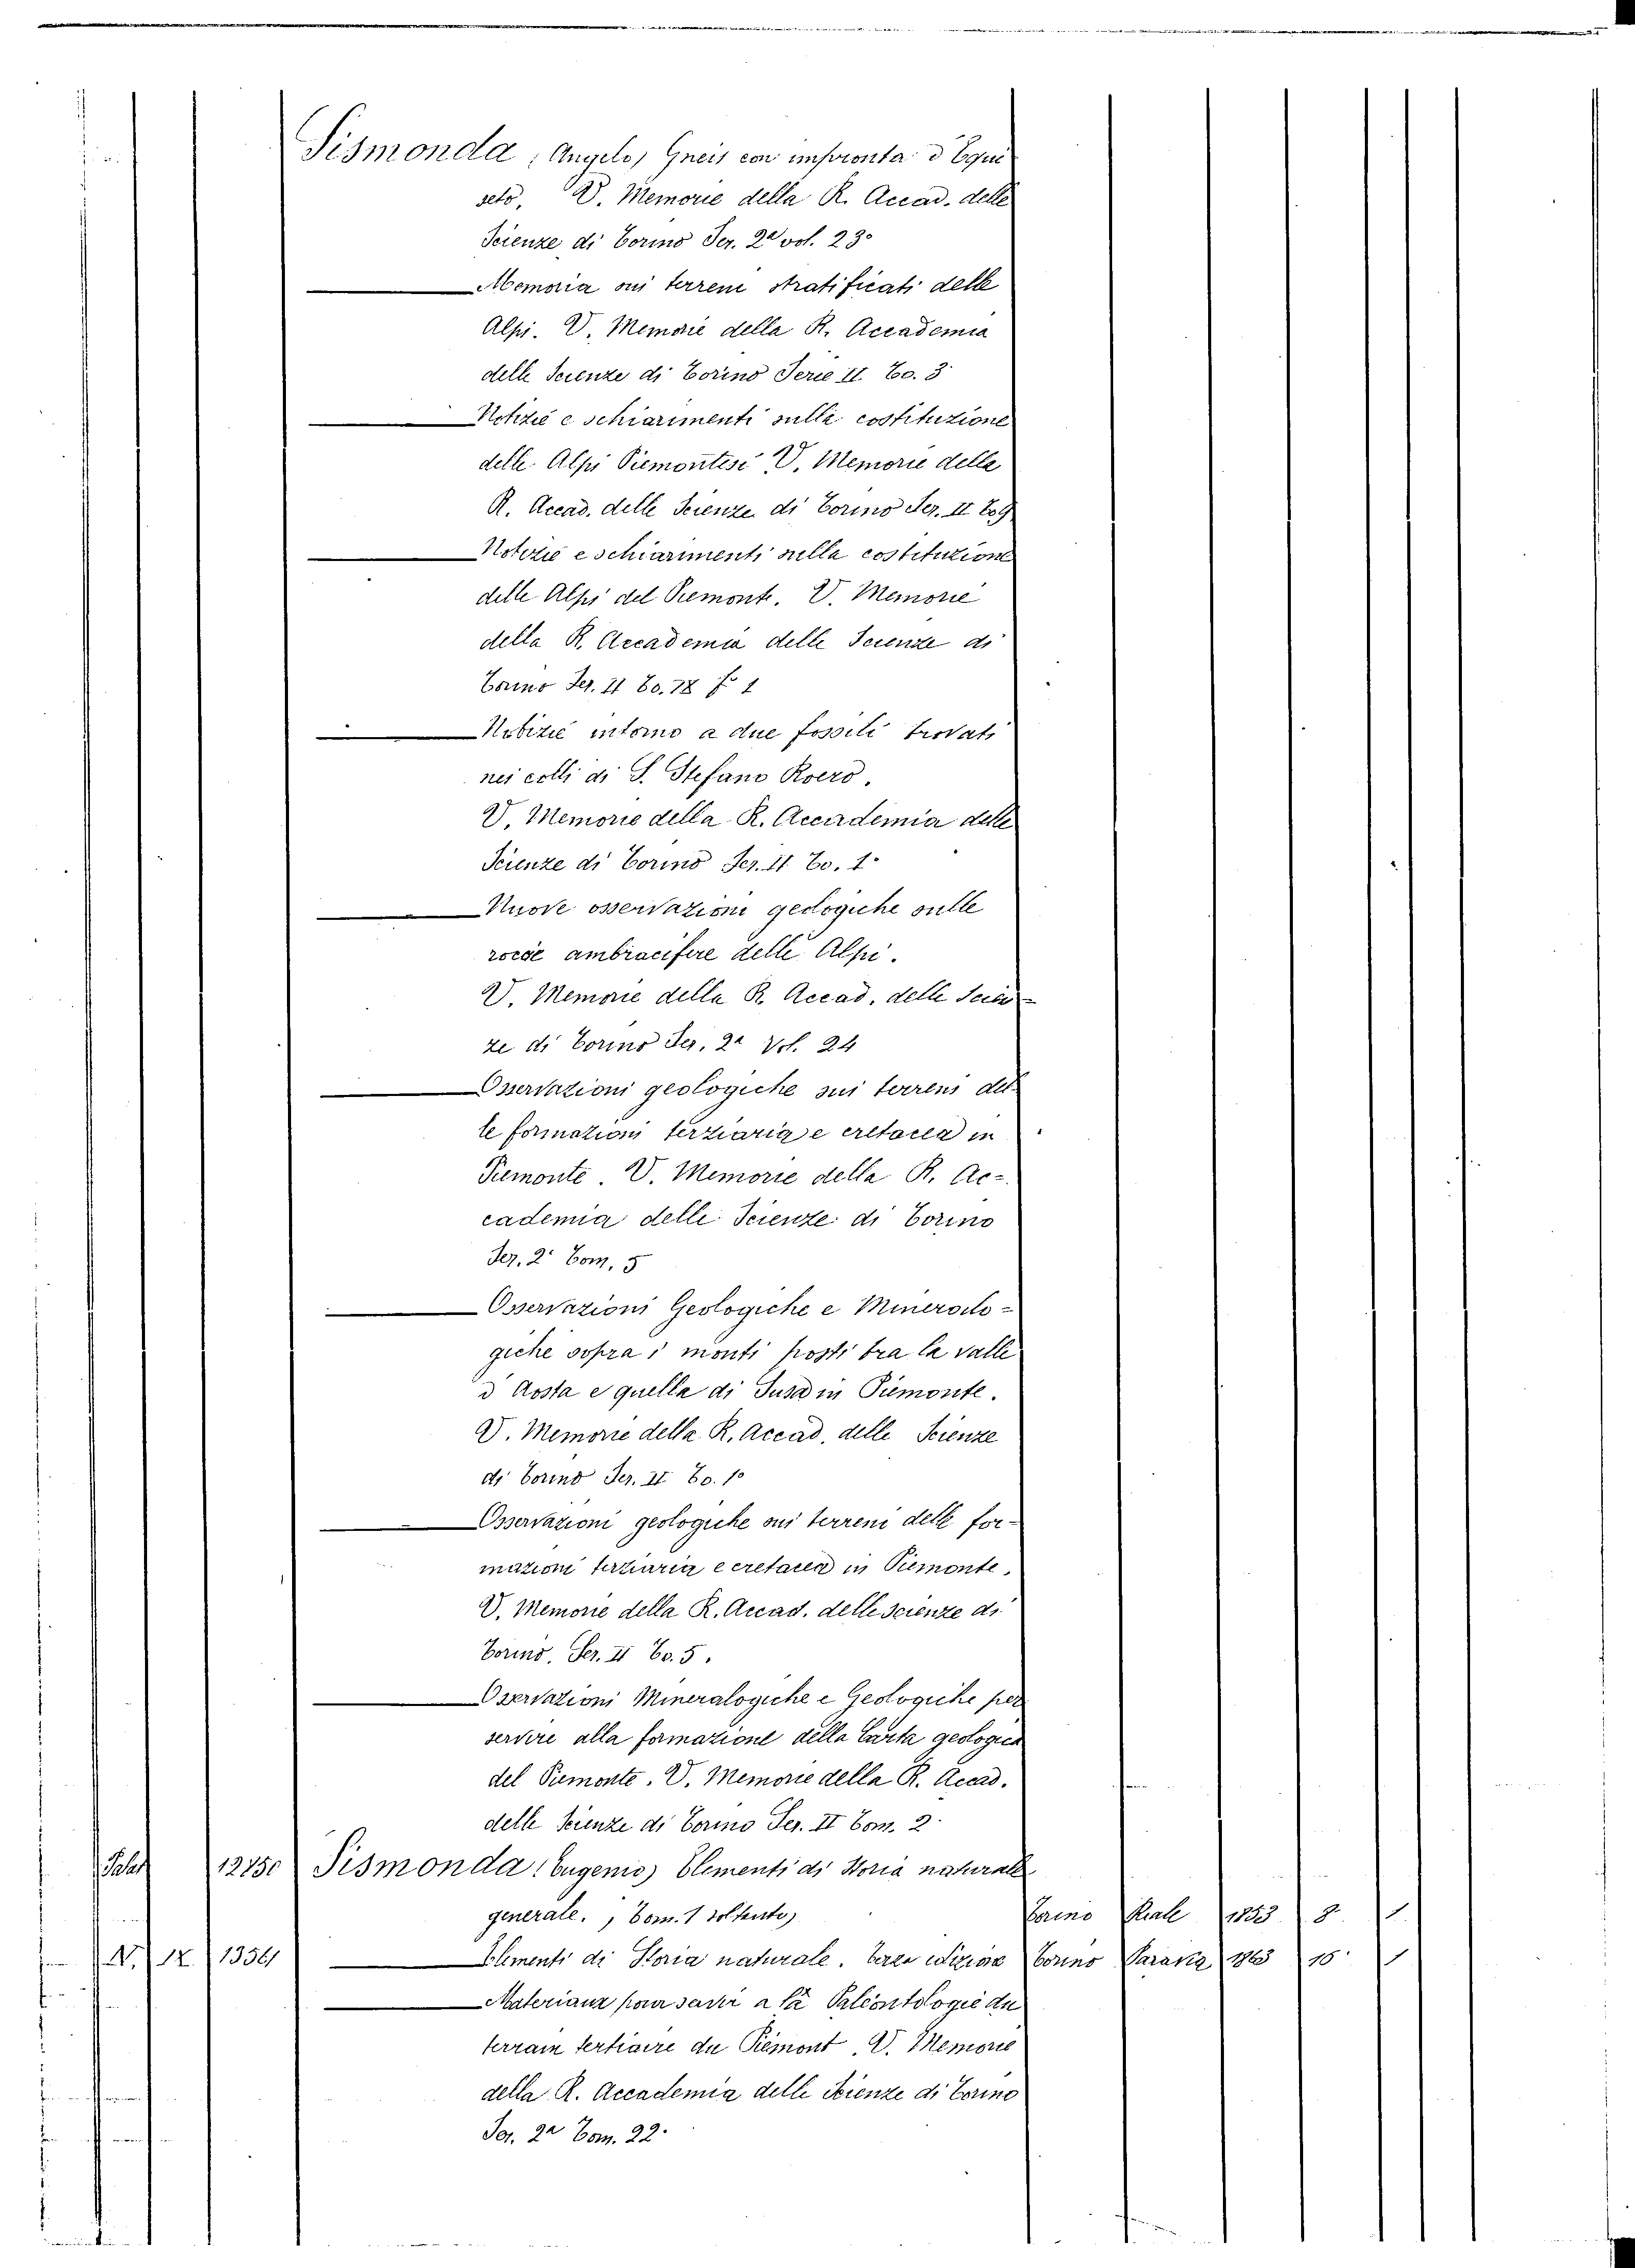 Sismonda (Angelo) Gneis con impronta d'Equi
seto, V. Memorie della R. Accad. delle
Scienze di Torino Ser. 2ª vol. 23º
Memoria sui terreni stratificati delle
Alpi. V. Memorie della R. Accademia
delle Scienze di Torino Serie II. To. 3
Notizie e schiarimenti sulla costituzione
delle Alpi Piemontesi V. Memorie della
R. Accad. delle Scienze di Torino Ser. II To 9
Notizie e schiarimenti sulla costituzione
delle Alpi del Piemonte. V. Memorie
della R. Accademia delle Scienze di
Torino Ser. II To. 18 1
Notizie intorno a due fossili trovati
nei colli di S. Stefano Roero.
V. Memorie della R. Accademia delle
Scienze di Torino Ser. II To. 1º
Nuove osservazioni geologiche sulle
rocce ambracifere delle Alpi.
V. Memorie della R. Accad. delle Scien=
ze di Torino Ser. 2ª Vol. 24
Osservazioni geologiche sui terreni del
le formazioni terziaria e cretacea in
Piemonte. V. Memorie della R. Ac=
cademia delle Scienze di Torino
Ser. 2ª Tom. 5
Osservazioni Geologiche e Mineralo=
giche sopra i monti posti tra la valle
d'Aosta e quella di Susa in Piemonte.
V. Memorie della R. Accad. delle Scienze
di Torino Ser. II To. 1º
Osservazioni geologiche sui terreni delle for=
mazioni terziaria e cretacea in Piemonte.
V. Memorie della R. Accad. delle scienze di
Torino. Ser. II To. 5.
Osservazioni Mineralogiche e Geologiche per
servire alla formazione della Carta geologica
del Piemonte. V. Memorie della R. Accad.
delle Scienze di Torino Ser. II Tom. 2
12750 Sismonda (Eugenio) Elementi di Storia naturale
generale. (Tom. 1 soltanto) Torino Reale 1853 8 1
N. 12 1354 Elementi di Storia naturale. Terza edizione Torino Paravia 1863 16º 1
Materiaux pour servir a la Paléontologie du
terrain tertiaire du Piémont. V. Memorie
della R. Accademia delle Scienze di Torino
Ser. 2ª Tom. 22.